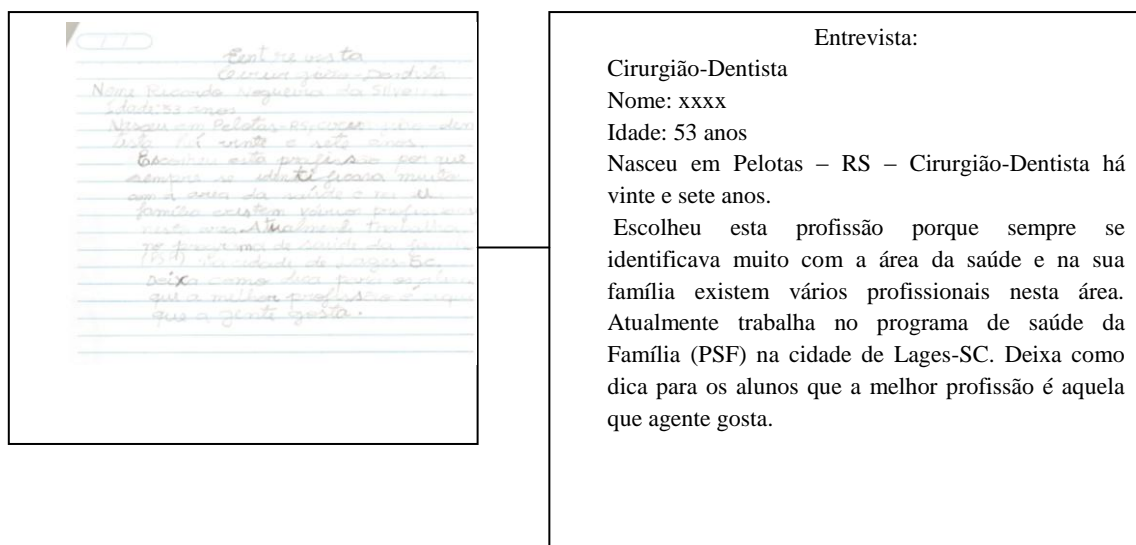 Entrevista
Cirurgião-Dentista
Nome Ricardo Nogueira da Silveira
Idade: 53 anos
Nasceu em Pelotas-RS, cirurgião den
tista há vinte e sete anos.
Escolheu esta profissão por que
sempre se identificava muito
com a area da saúde e na
família existem vários
nesta area Atualmente trabalha
no de saúde da
(PSF) na cidade de Lages Sc.
Deixa como dica para os
que a melhor profissão é
que a gente gosta.
Entrevista:
Cirurgião-Dentista
Nome: xxxx
Idade: 53 anos
Nasceu em Pelotas – RS – Cirurgião-Dentista há
vinte e sete anos.
Escolheu esta profissão porque sempre se
identificava muito com a área da saúde e na sua
família existem vários profissionais nesta área.
Atualmente trabalha no programa de saúde da
Família (PSF) na cidade de Lages-SC. Deixa como
dica para os alunos que a melhor profissão é aquela
que agente gosta.